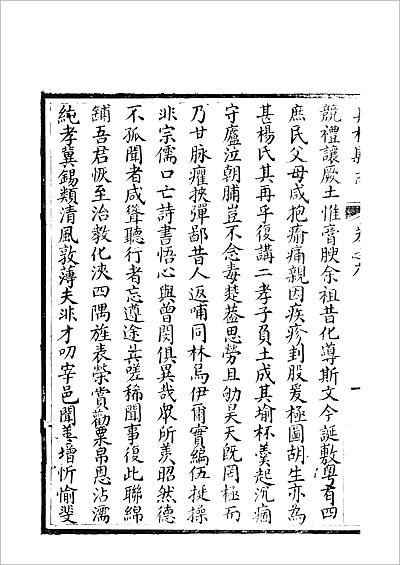 競禮讓厥土惟膏腴余祖昔化導斯文今誕敷粵有四
庶民父母咸抱痌瘝親因疾疹刲股爰極圖胡生亦為
甚楊氏其再乎復講二孝子負土成其坵杯羹起沉痼
守廬泣朝晡豈不念毒楚藎思勞且劬昊天旣罔極而
乃甘脉癯挾彈鄙昔人返哺同林烏伊爾實編伍挺操
非宗儒口亡詩書悟心與曾閔俱異哉眾所羨昭然德
不孤聞者咸聳聽行者忘遵途共嗟稀聞事復此聯綿
鋪吾君恢至治教化浹四隅旌表榮賞勸粟帛恩沾濡
純孝冀錫類清風敦薄夫非才叨宰邑聞善增忻愉斐